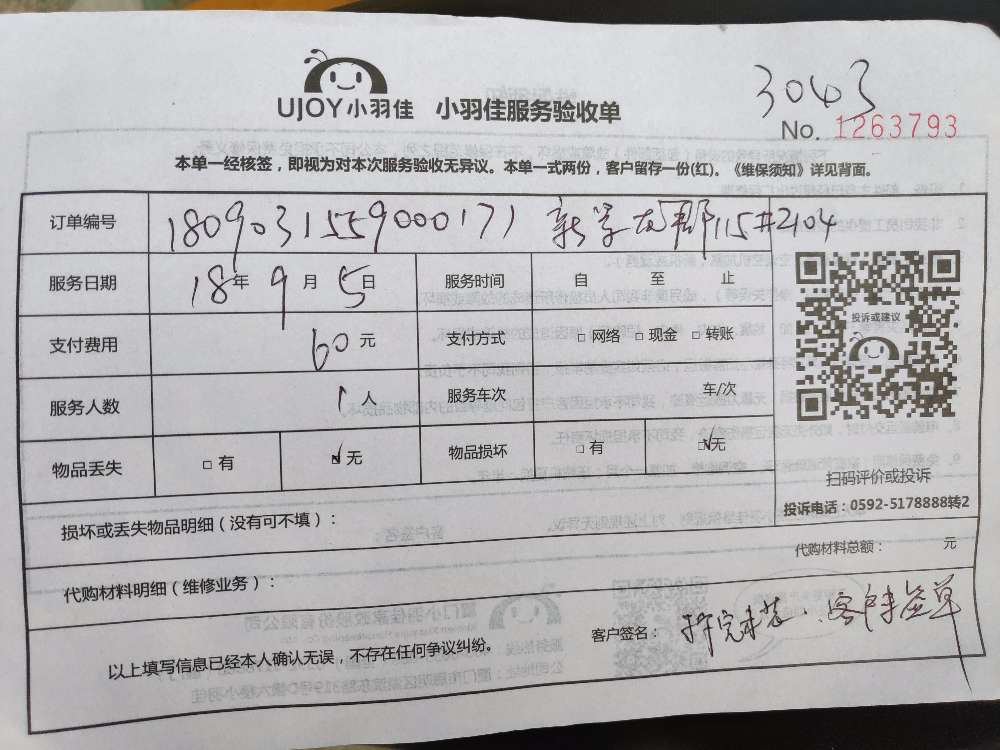 3043
UJOY小羽佳 小羽佳服务验收单
No. 1263793
本单一经核签，即视为对本次服务验收无异议。本单一式两份，客户留存一份(红)。《维保须知》详见背面。
订单编号 1809031559000171 新学友郡115#2104
服务日期 18年 9月 5日 服务时间 自 至 止
支付费用 60元 支付方式 □ 网络 □ 现金 □ 转账
服务人数 1人 服务车次 车/次
物品丢失 □ 有 ☑ 无 物品损坏 □ 有 ☑ 无
投诉或建议
扫码评价或投诉
投诉电话：0592-5178888转2
损坏或丢失物品明细（没有可不填）：
代购材料明细（维修业务）： 代购材料总额： 元
以上填写信息已经本人确认无误，不存在任何争议纠纷。 客户签名： 拆完未装．客户未签单